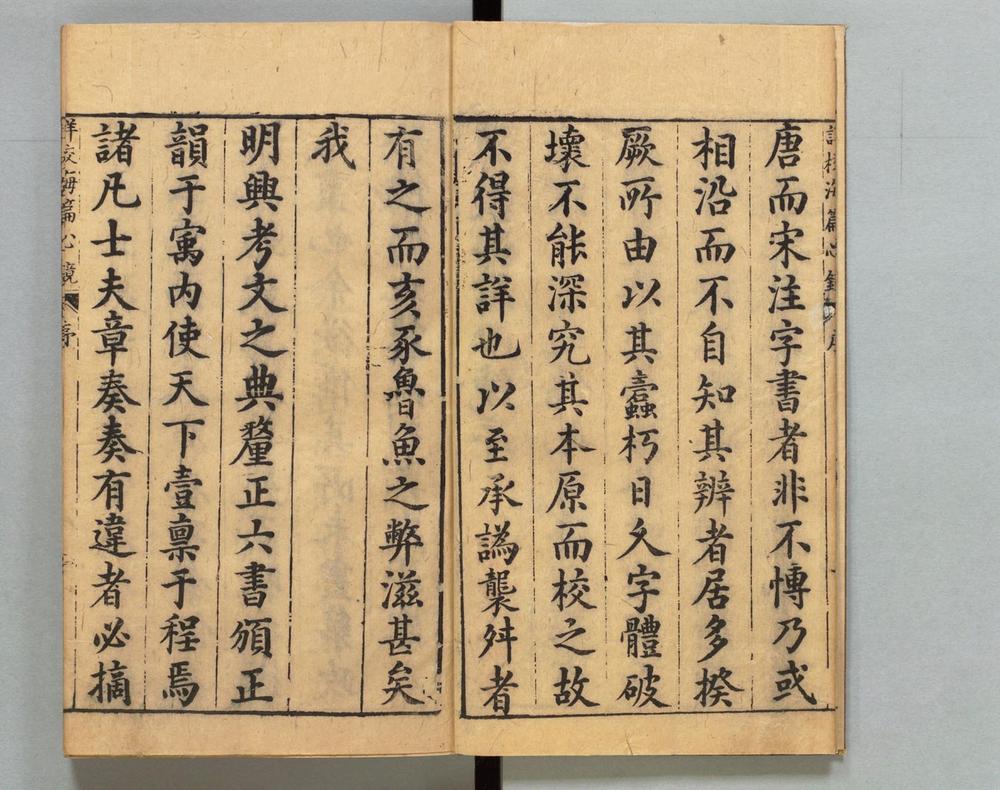 唐而宋注字書者非不愽乃或
相沿而不自知其辨者居多揆
厥所由以其蠹朽日久字體破
壞不能深究其本原而校之故
不得其詳也以至承譌襲舛者
有之而亥豕魯魚之弊滋甚矣
我
明興考文之典釐正六書頒正
韻于寓內使天下壹稟于程焉
諸凡士夫章奏奏有違者必摘
詳校海篇心鏡
序